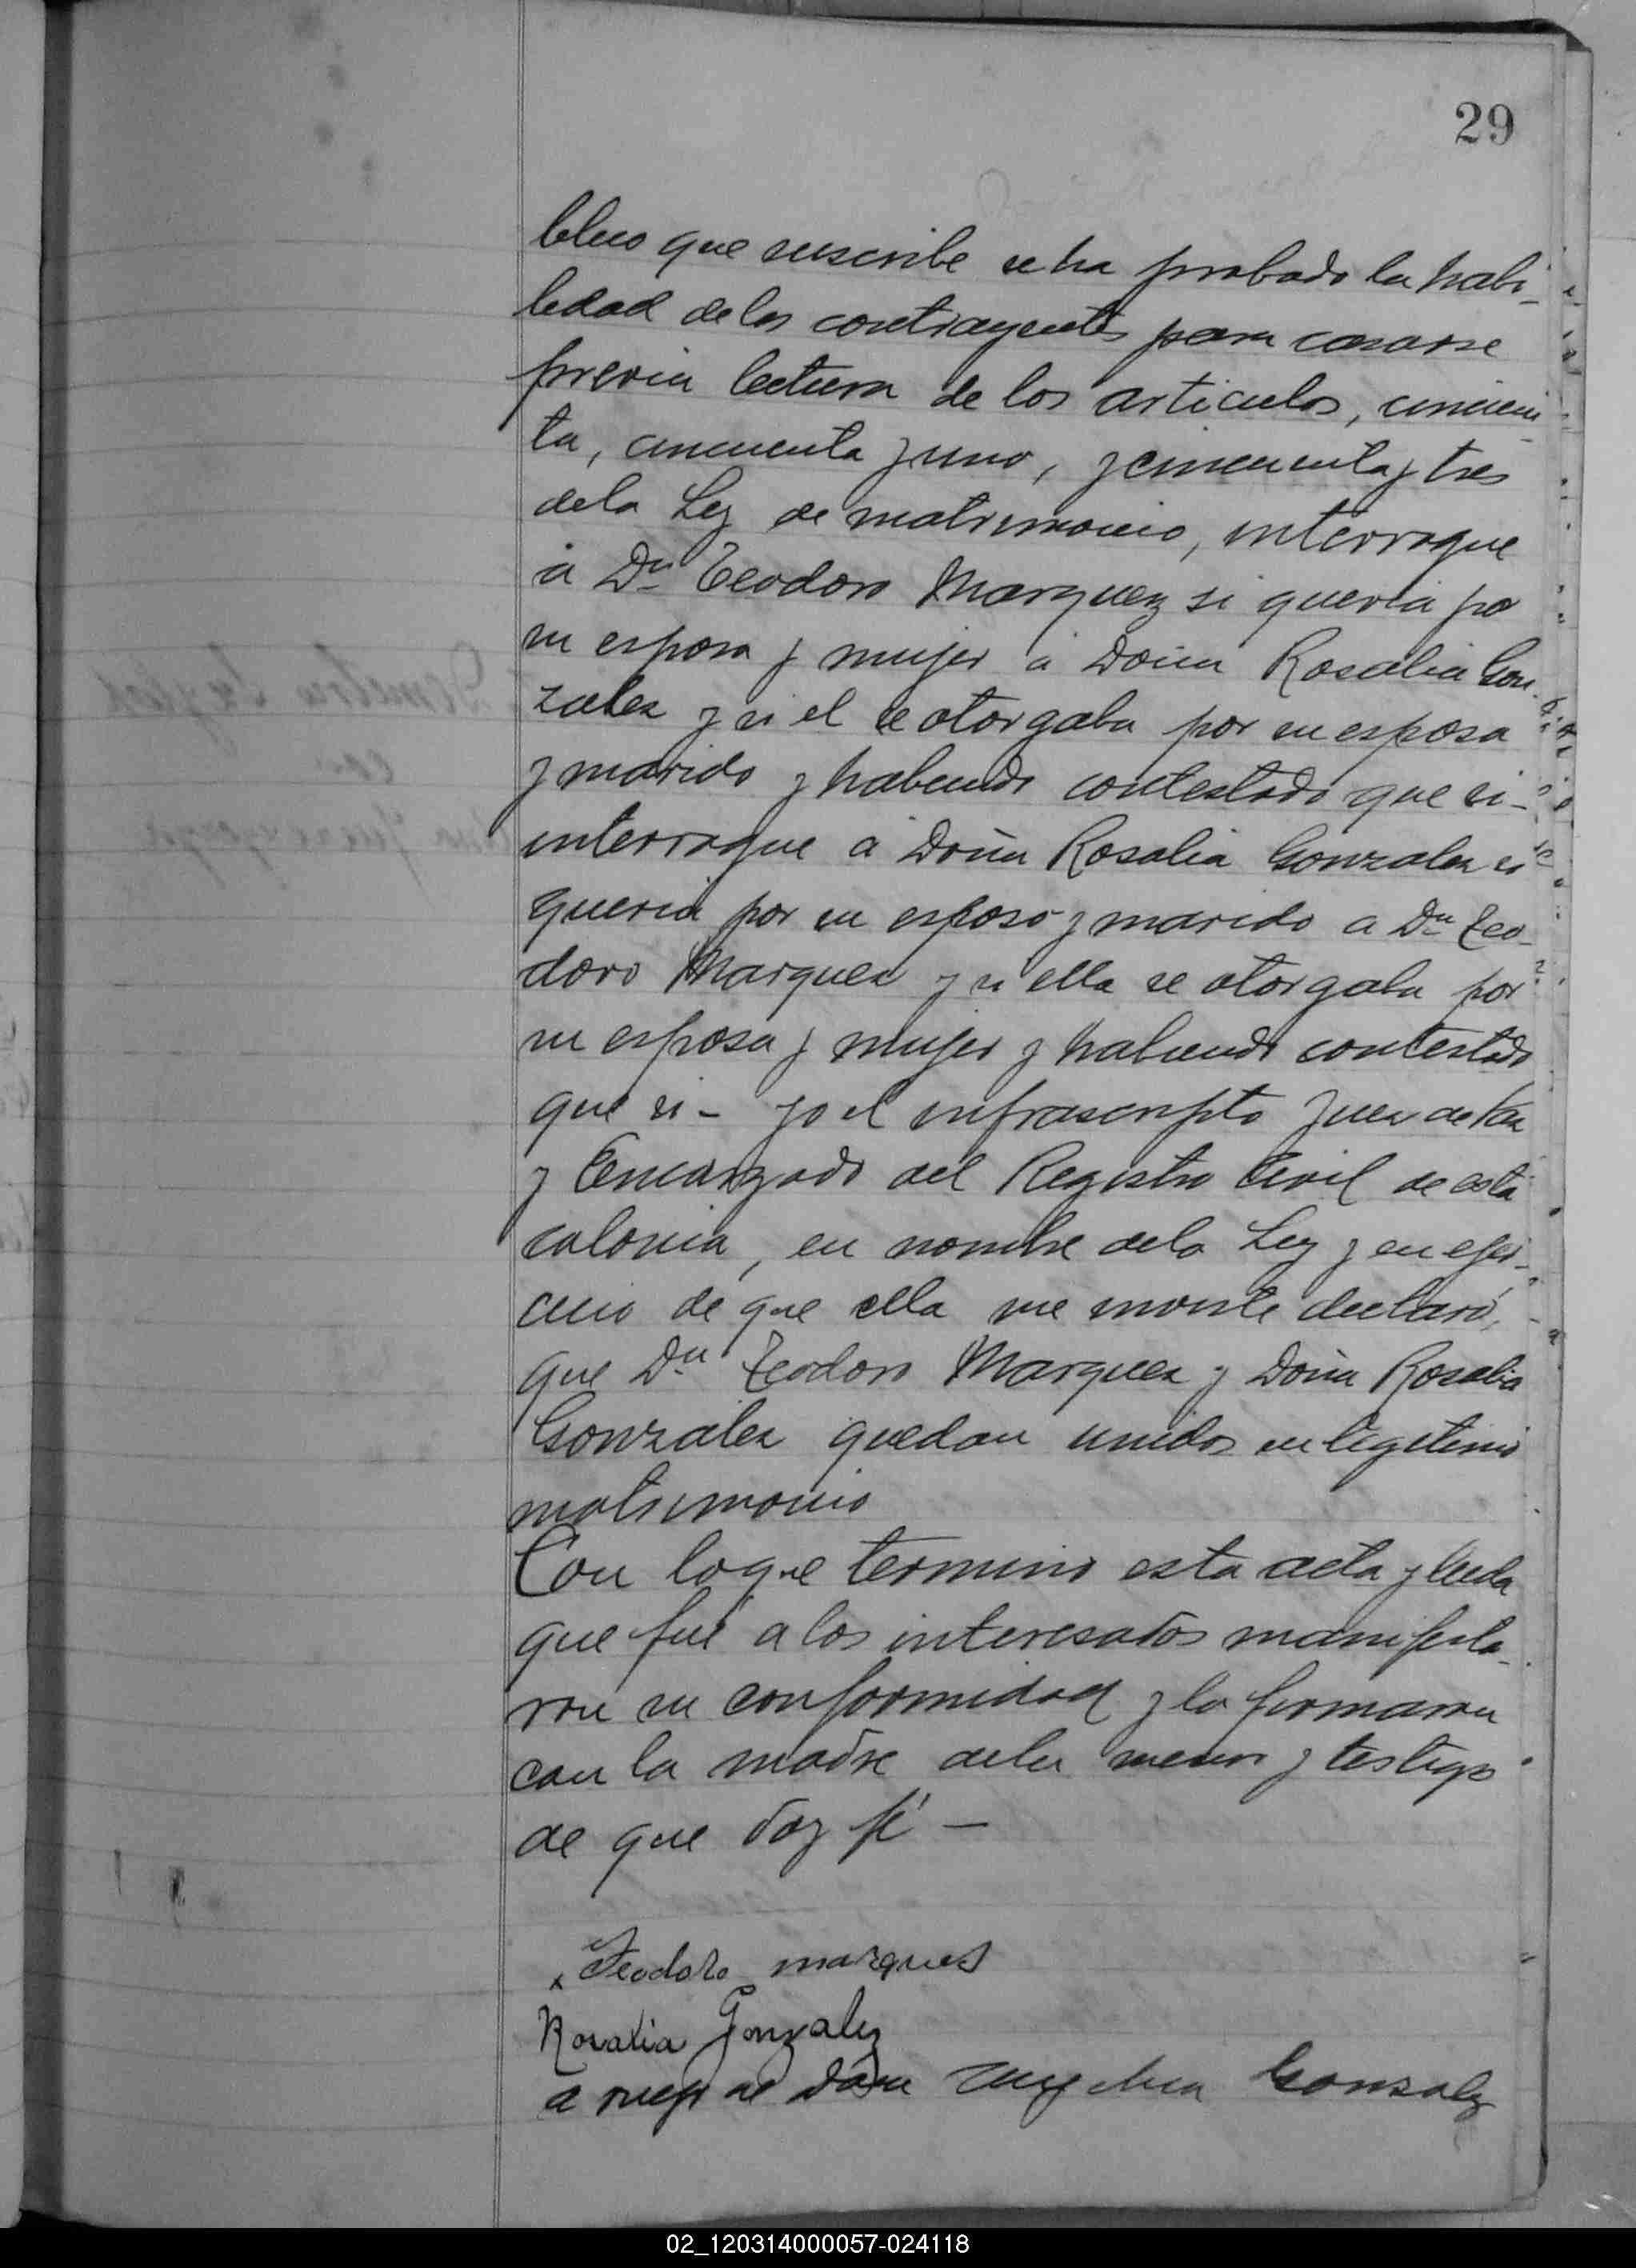 29
blico que suscribe se ha probado la habi-
lidad de los contrayentes para casarse
previa lectura de los articulos, cincuen
ta, cincuenta y uno, y cincuenta y tres
de la Ley de matrimonio, interrogue
a Dn Teodoro Marquez si queria po
su esposa y mujer a Doña Rosalia Gon-
zalez y si el se otorgaba por su esposo
y marido y habiendo contestado que si-
interrogue a Doña Rosalia Gonzalez si
queria por su esposo y marido a Dn Teo-
doro Marquez y si ella se otorgaba por
su esposa y mujer y habiendo contestado
que si - yo el infrascripto Juez de Paz
y Encargado del Registro Civil de esta
colonia, en nombre de la Ley y en ejer-
cicio de que ella me inviste declaró,
que Dn Teodoro Marquez y Doña Rosalia
Gonzalez quedan unidos en legitimo
matrimonio
Con lo que termino esta acta y leida
que fué a los interesados manifesta-
ron su conformidad y la firmaron
con la madre de la menor y testigos
de que doy fé -
x Teodoro marques
Rosalia Gonzalez
a ruego de Doña Gonzalez
02_120314000057-024118